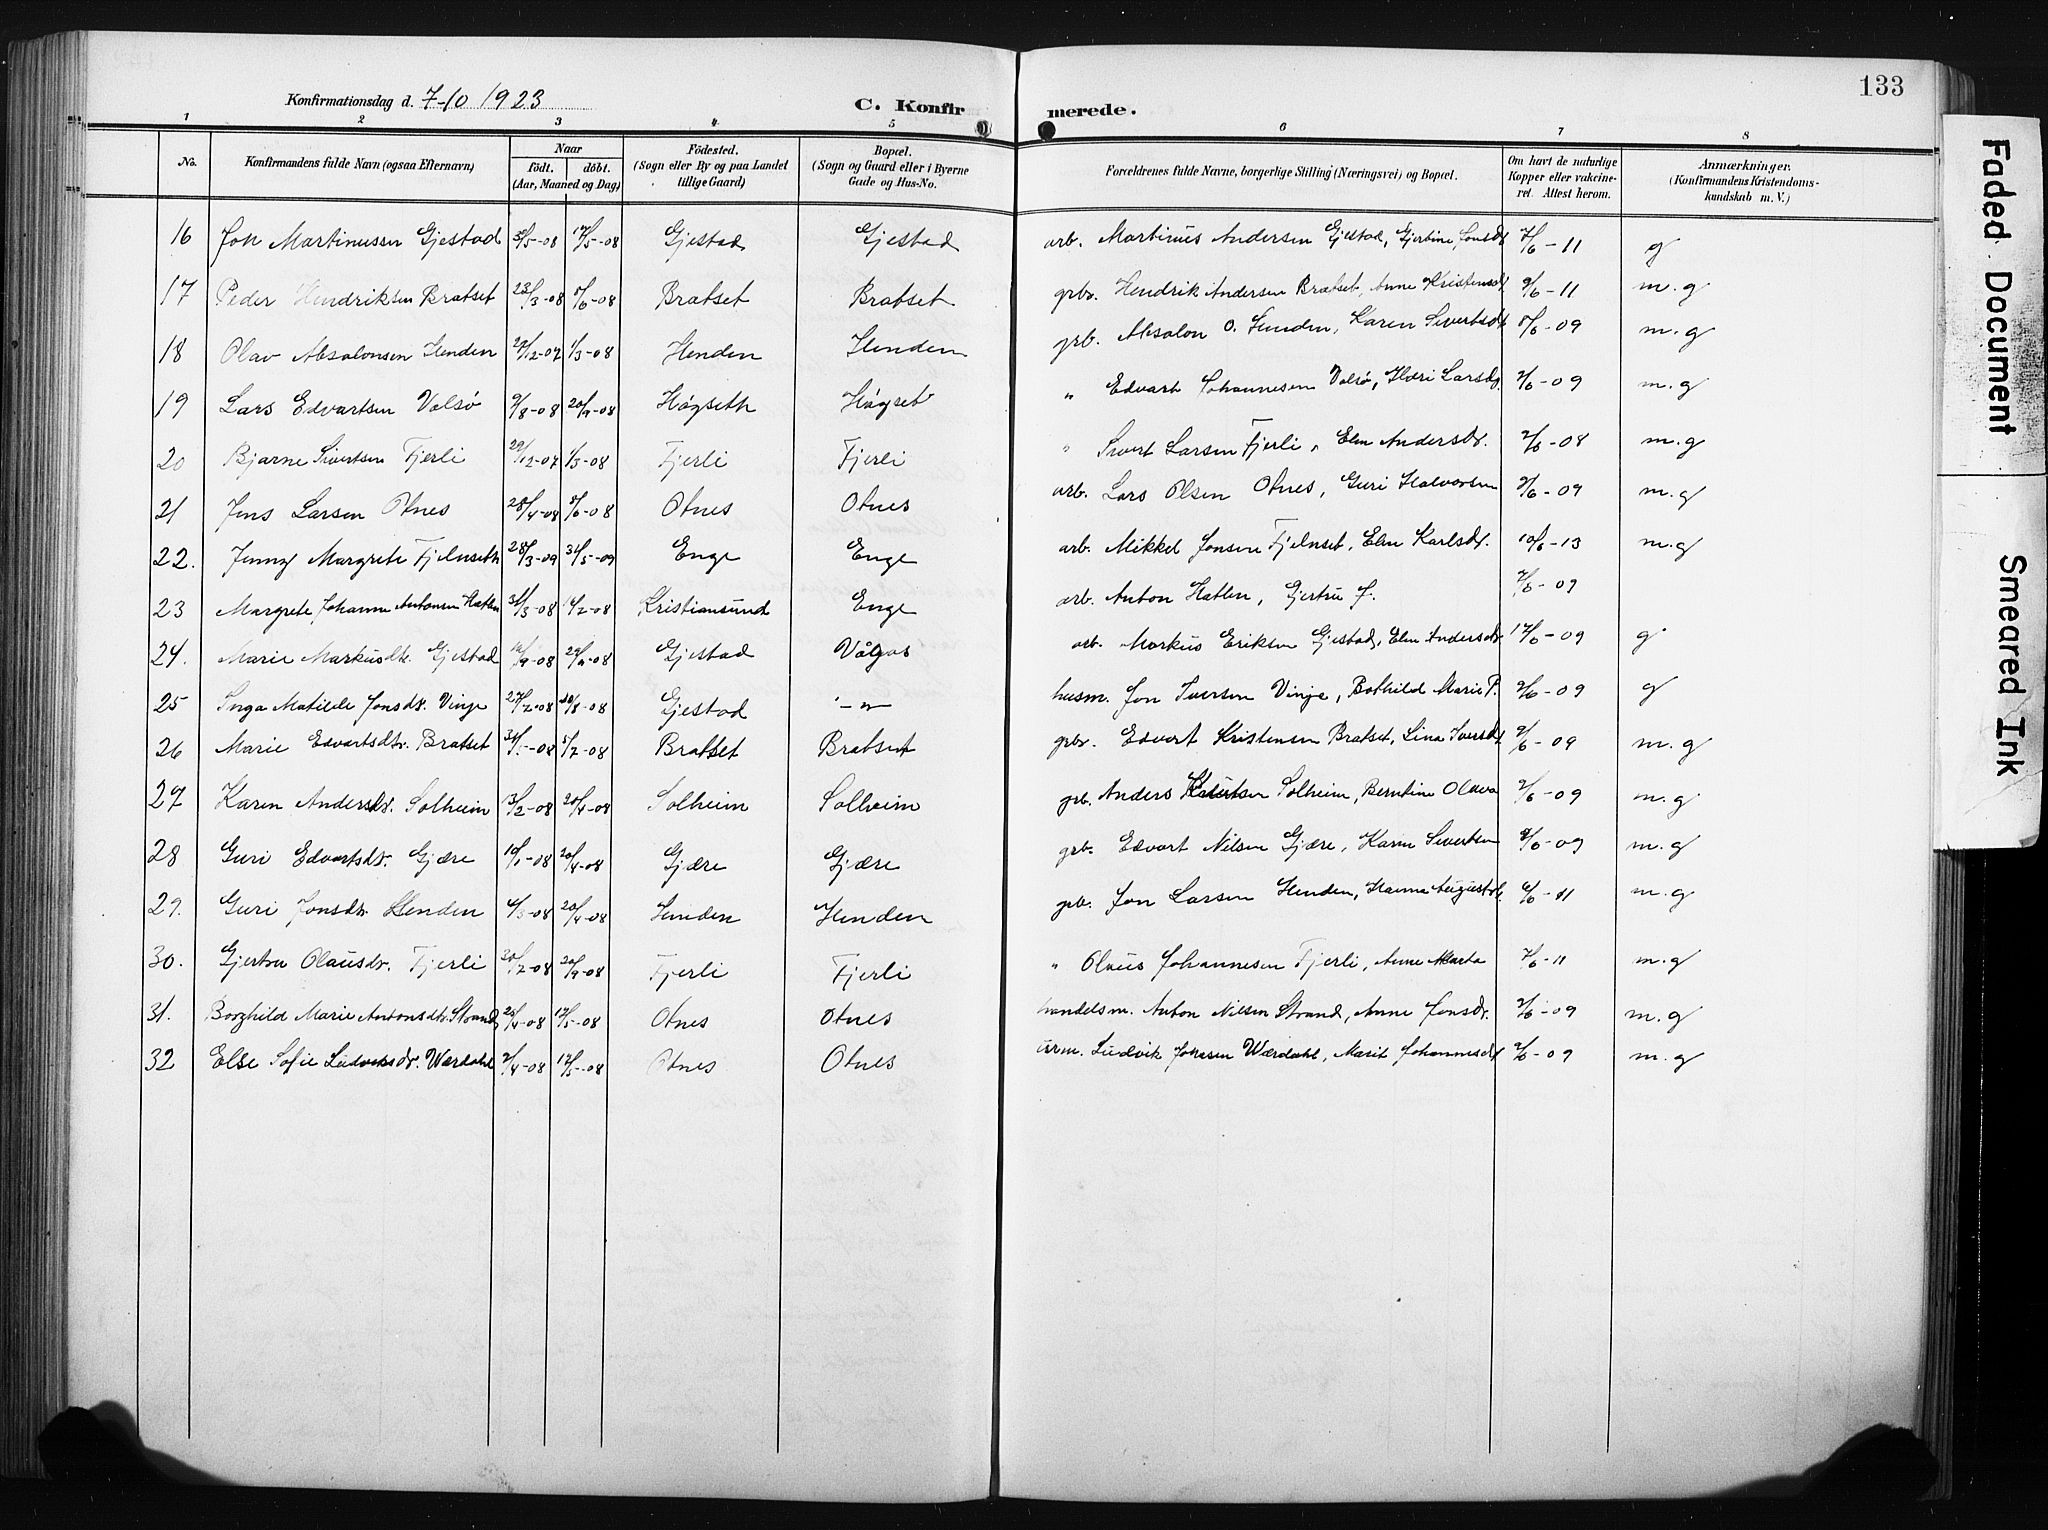 133
Konfirmationsdag d. 7-10 1923 C. Konfirmerede.
1 2 3 4 5 6 7 8
No. Konfirmandens fulde Navn (ogsaa Efternavn) Naar født. døbt. (Aar, Maaned og Dag) Fødested. (Sogn eller By og paa Landet tillige Gaard) Bopæl. (Sogn og Gaard eller i Byerne Gade og Hus-No. Forældrenes fulde Navne, borgerlige Stilling (Næringsvei) og Bopæl. Om havt de naturlige Kopper eller vakcineret. Attest herom. Anmærkninger. (Konfirmandens Kristendomskundskab m. V.)
16 Jon Martinussen Gjestad 17/5-08 Gjestad Gjestad arb. Martinus Andersen Gjestad, 7/6-11 g
17 Peder Hendriksen Bratset 23/3-08 Bratset Bratset grbr. Hendrik Andersen Bratset, Anne Kristensd. 9/6-11 m.g
18 Olav Absalonsen Henden 1/3-08 Henden Henden grb. Absalon O. Henden, Karen Sivertsd. m.g
19 Lars Edvartsen Valsø 9/8-08 Høgseth Høgset " Edvart Johannesen Valsø, Larsd. m.g
20 Bjarne Sivertsen Fjerli 29/12-07 1/3-08 Fjerli Fjerli " Sivert Larsen Fjerli, Elen Andersdr. m.g
21 Jens Larsen Otnes 28/4-08 Otnes Otnes arb. Lars Olsen Otnes, Guri Halvorsen m.g
22. Jenny Margrete Fjelnseth 28/3-09 31/5-09 Enge Enge arb. Mikkel Jonsen Fjelnset, Elen Karlsdr. 10/6-13 m.g
23 Margrete Johanne Antonsen Hatlen Kristiansund Enge arb. Anton Hatlen, Gjertru J.
24. Marie Markusdtr. Gjestad Gjestad Vågos arb. Markus Eriksen Gjestad, Elen Andersdr. 17/6-09 g
25 Inga Matilde Jonsdtr. Vinje Gjestad -"- husm. Jon Iversen Vinje, Bothild Marie P. g
26 Marie Edvartsdtr. Bratset 5/7-08 Bratset Bratset grbr. Edvart Kristensen Bratset, Lina Iversd. m.g
27 Karen Andersdtr. Solheim 13/2-08 20/4-08 Solheim Solheim grb. Anders Solheim, Berntine Olava m.g
28 Guri Edvartsdtr. Gjære 20/4-08 Gjære Gjære grb. Edvart Nilsen Gjære, Karen Sivertsen m.g
29. Guri Jonsdtr. Henden 20/4-08 Henden Henden grb. Jon Larsen Henden, Hanna Augustd. m.g
30. Gjertru Olausdr. Fjerli Fjerli Fjerli " Olaus Johannesen Fjerli, Anne Marta 7/6-11 m.g
31. Borghild Marie Antonsdtr. Strand 17/5-08 Otnes Otnes handelsm. Anton Nilsen Strand, Anne Jonsdr. m.g
32 Else Sofie Ludviksdr. Wærdahl 17/5-08 Otnes Otnes Ludvik Wærdahl, Marit Johannesd. m.g
Faded Document
Smeared Ink